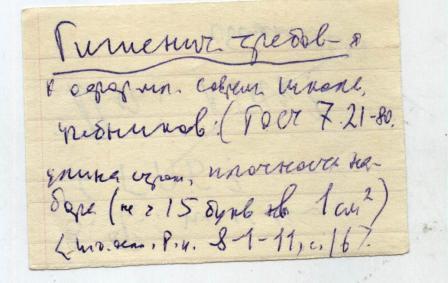 Гигиенич. требов-я
к оформл. соврем. школь.
учебников. (Гост 7.21-80.
длина строк, плотность на-
бора (не > 15 букв на 1 см²)
8-1-11, с. 16